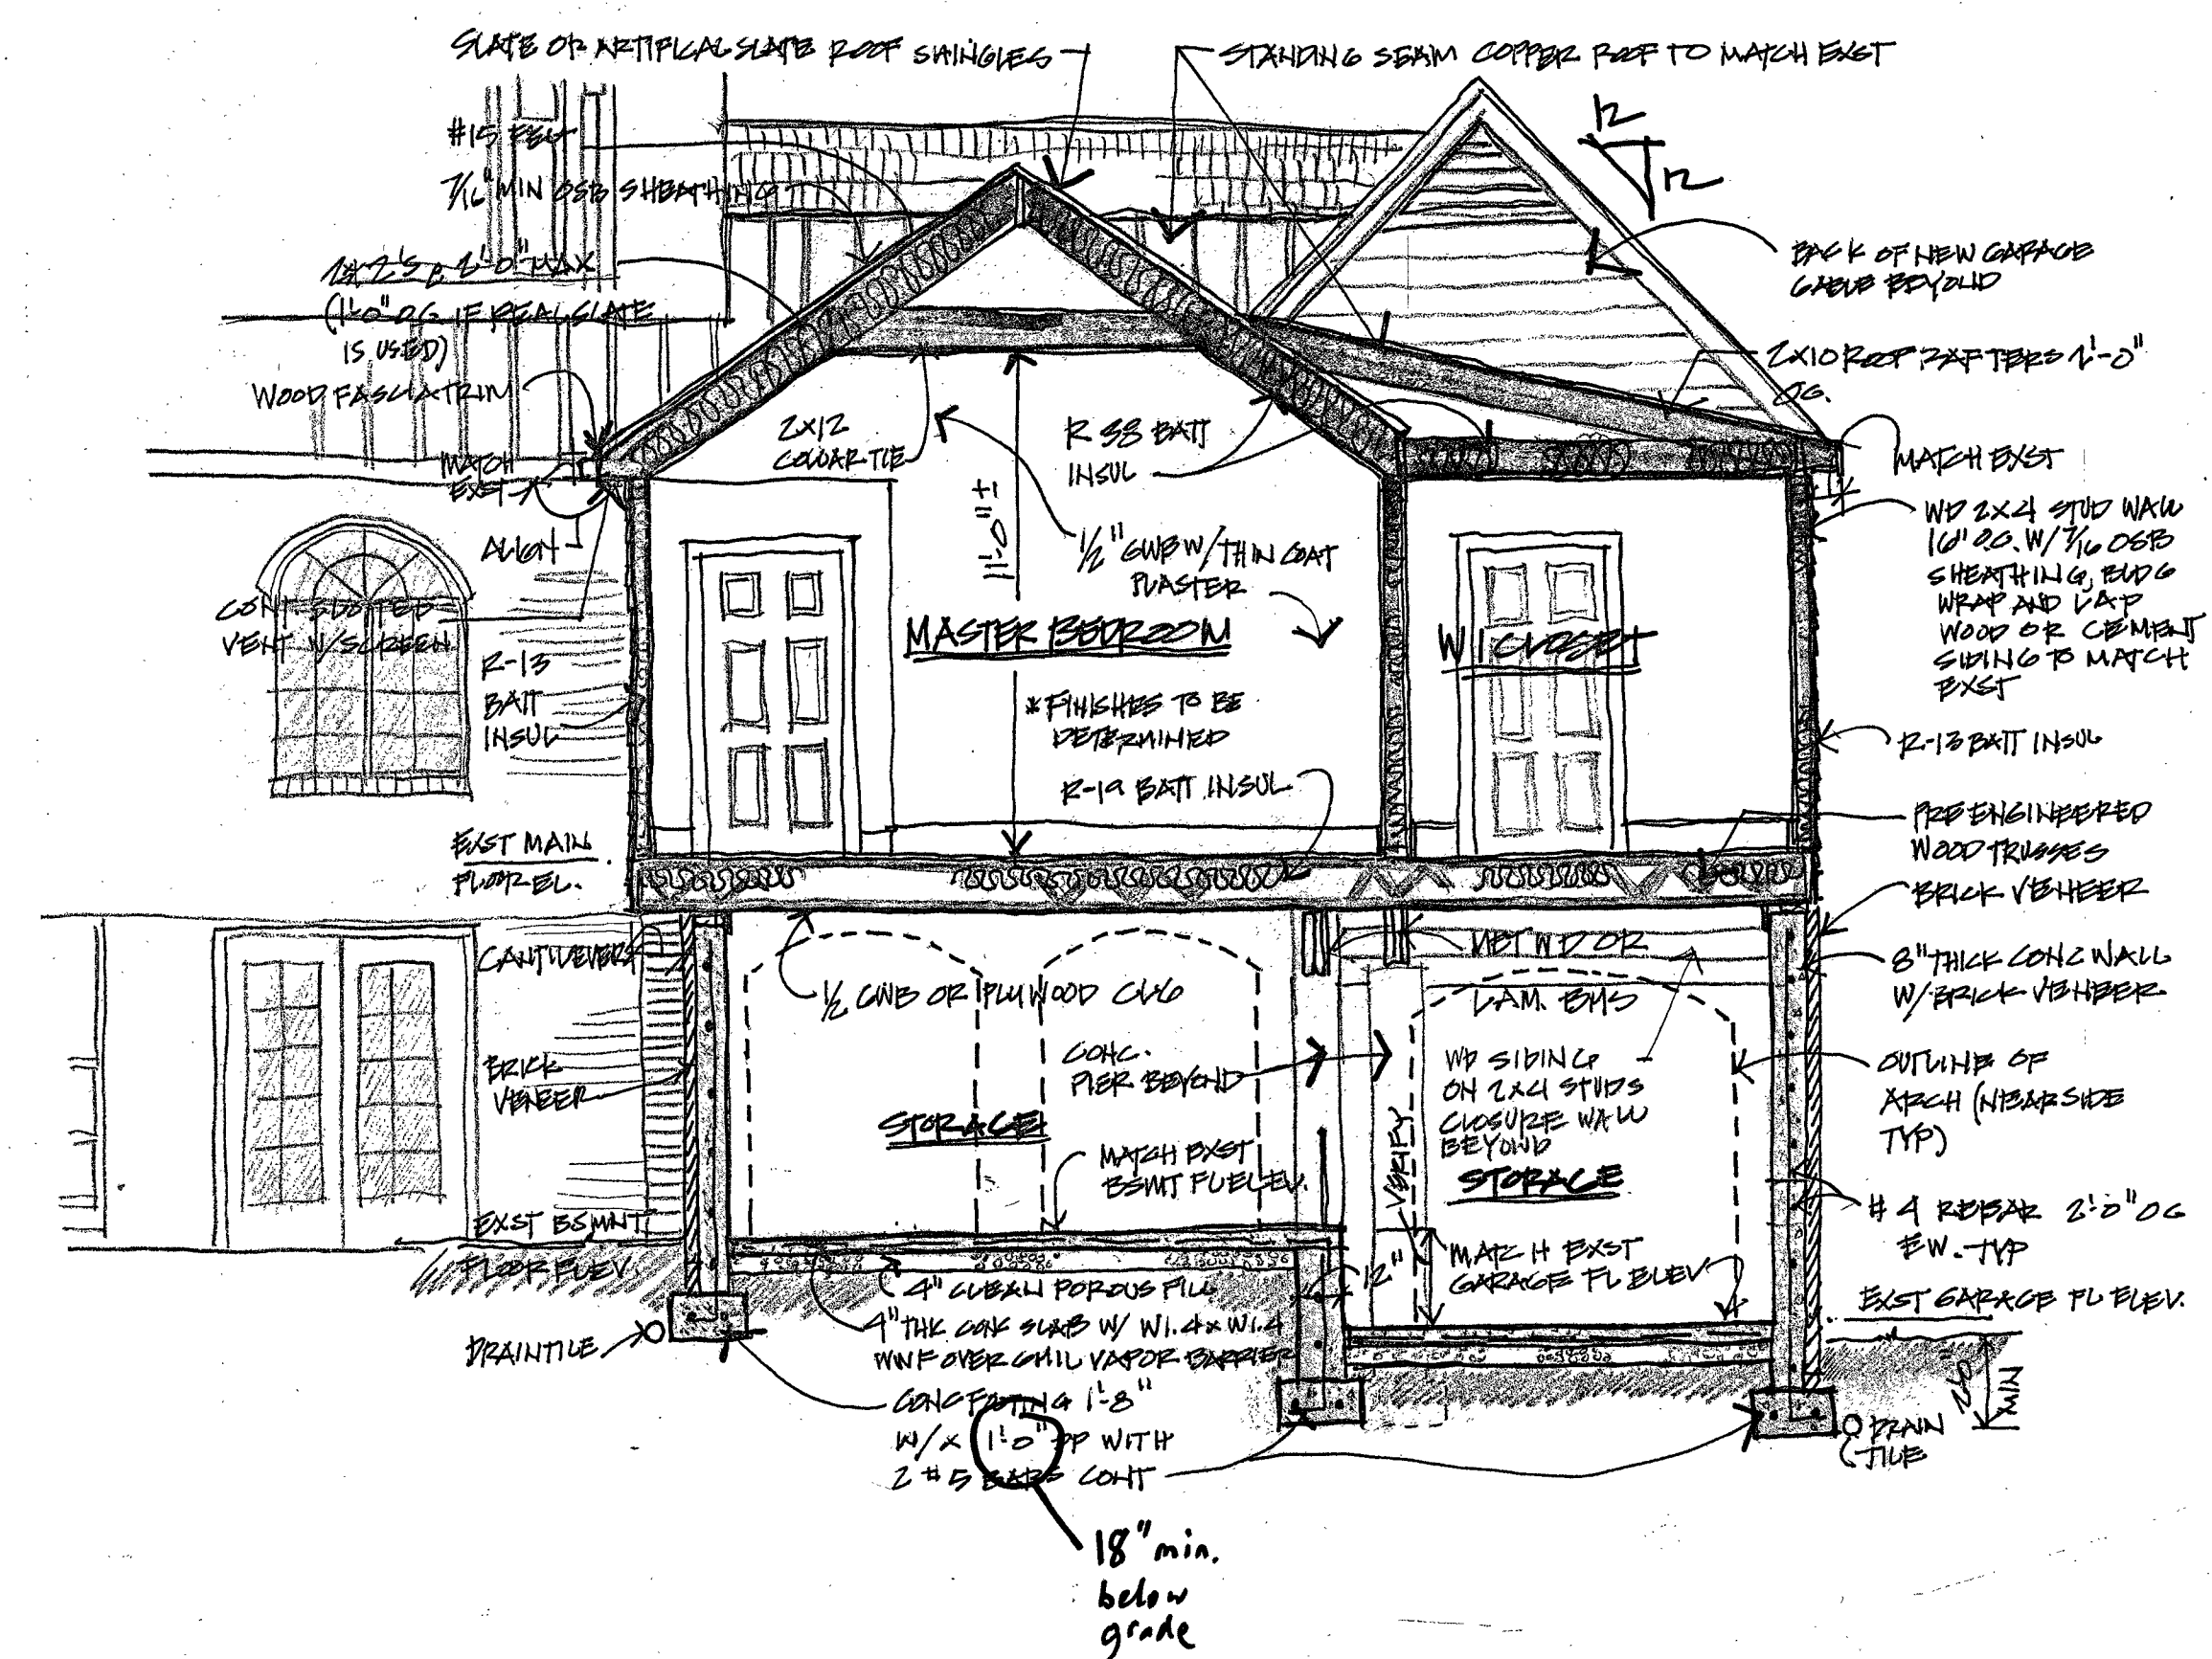 SLATE OR ARTIFICAL SLATE ROOF SHINGLES
STANDING SEAM COPPER ROOF TO MATCH EXST
#15 FELT
7/16" MIN OSB SHEATHING
2'-0" MAX
(1'-0" OC IF REAL SLATE
IS USED)
WOOD FASCIA TRIM
MATCH
EXST
ALIGN
CONT. SLOTTED
VENT W/SCREEN
R-13
BATT
INSUL
EXST MAIN
FLOOR EL.
CANTILEVER
BRICK
VENEER
EXST BSMNT
FLOOR ELEV.
DRAINTILE
12
12
BACK OF NEW GARAGE
GABLE BEYOND
2X10 ROOF RAFTERS 2'-0"
OC.
MATCH EXST
WD 2X4 STUD WALL
16" O.C. W/ 7/16 OSB
SHEATHING, BLDG
WRAP AND LAP
WOOD OR CEMENT
SIDING TO MATCH
EXST
R-13 BATT INSUL
PRE ENGINEERED
WOOD TRUSSES
BRICK VENEER
8" THICK CONC WALL
W/ BRICK VENEER
OUTLINE OF
ARCH (NEAR SIDE
TYP)
#4 REBAR 2'-0" OC
EW. TYP
EXST GARAGE FL ELEV.
MIN
DRAIN
TILE
2X12
COLLAR TIE
R 38 BATT
INSUL
11'-0" ±
1/2" GWB W/ THIN COAT
PLASTER
MASTER BEDROOM
W I CLOSET
* FINISHES TO BE
DETERMINED
R-19 BATT INSUL
1/2 GWB OR PLYWOOD CLG
WD OR
LAM. BMS
CONC.
PIER BEYOND
WD SIDING
ON 2X4 STUDS
CLOSURE WALL
BEYOND
STORAGE
STORAGE
VERIFY
MATCH EXST
BSMT FL ELEV.
MATCH EXST
GARAGE FL ELEV
12"
4" CLEAN POROUS FILL
4" THK CONC SLAB W/ W1.4 X W1.4
WWF OVER 6MIL VAPOR BARRIER
CONC FOOTING 1'-8"
W/ X 1'-0" DP WITH
2 #5 BARS CONT
18" min.
below
grade